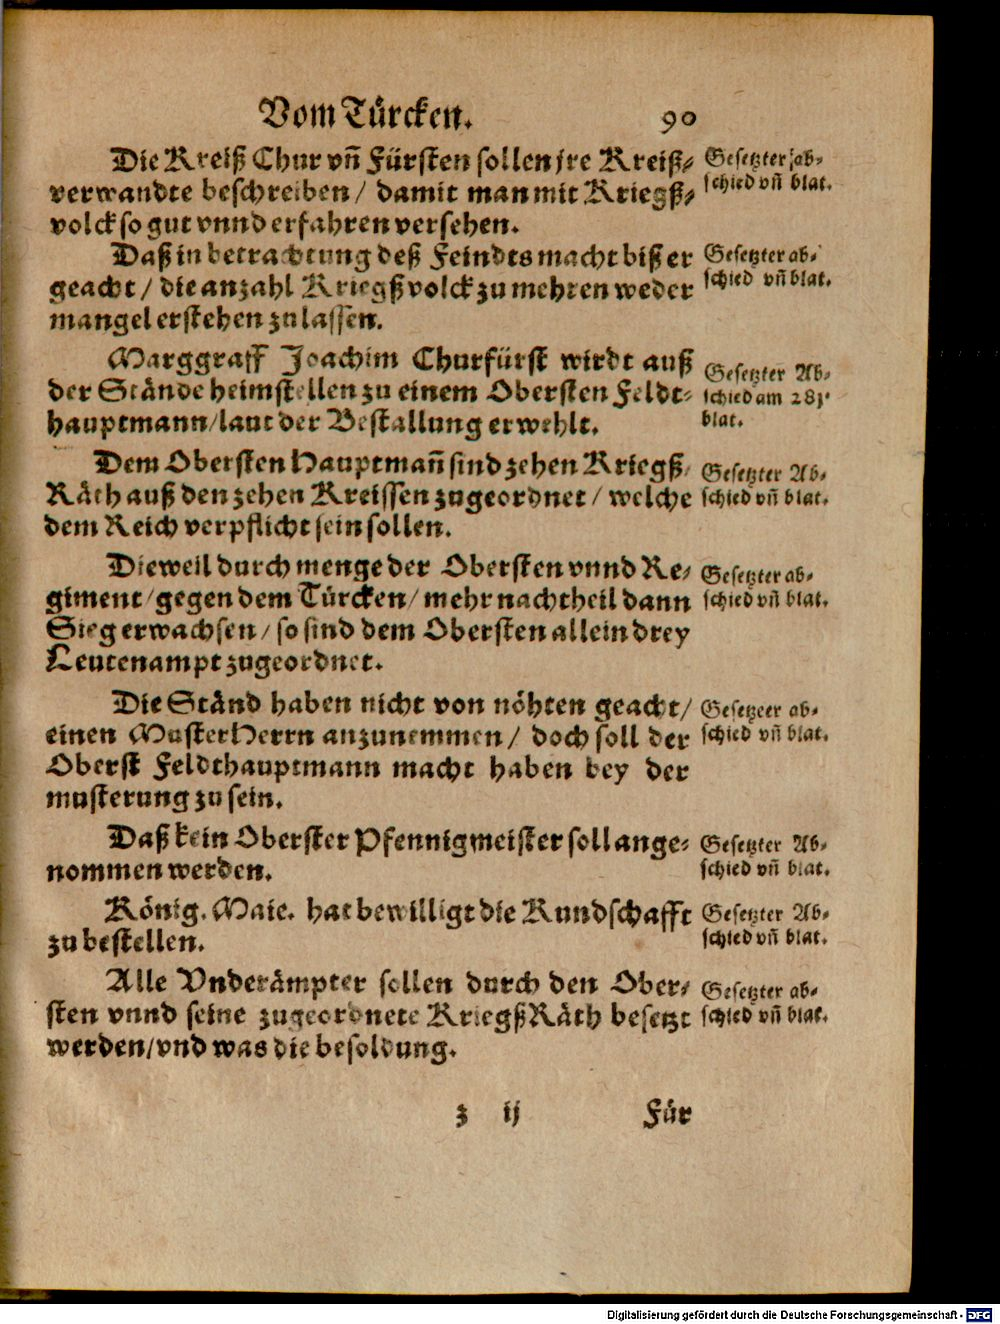 Vom Türcken. 90
Die Kreiß Chur vñ Fürsten sollen jre Kreiß-
verwandte beschreiben/ damit man mit Kriegß-
volck so gut vnnd erfahren versehen.
Gesetzter ab-
schied vñ blat.
Daß in betrachtung deß Feindts macht biß er
geacht/ die anzahl Kriegßvolck zu mehren weder
mangel erstehen zu lassen.
Gesetzter ab-
schied vñ blat.
Marggraff Joachim Churfürst wirdt auß
der Stände heimstellen zu einem Obersten Feldt-
hauptmann/ laut der Bestallung erwehlt.
Gesetzter Ab-
schied am 281.
blat.
Dem Obersten Hauptmañ sind zehen Kriegß-
Räth auß den zehen Kreissen zugeordnet/ welche
dem Reich verpflicht sein sollen.
Gesetzter Ab-
schied vñ blat.
Dieweil durch menge der Obersten vnnd Re-
giment/ gegen dem Türcken/ mehr nachtheil dann
Sieg erwachsen/ so sind dem Obersten allein drey
Leutenampt zugeordnet.
Gesetzter ab-
schied vñ blat.
Die Ständ haben nicht von nöhten geacht/
einen MusterHerrn anzunemmen/ doch soll der
Oberst Feldthauptmann macht haben bey der
musterung zu sein.
Gesetzter ab-
schied vñ blat.
Daß kein Oberster Pfennigmeister soll ange-
nommen werden.
Gesetzter Ab-
schied vñ blat.
König. Maie. hat bewilligt die Kundschafft
zu bestellen.
Gesetzter Ab-
schied vñ blat.
Alle Vnderämpter sollen durch den Ober-
sten vnnd seine zugeordnete KriegßRäth besetzt
werden/ vnd was die besoldung.
Gesetzter ab-
schied vñ blat.
z ij Für
Digitalisierung gefördert durch die Deutsche Forschungsgemeinschaft - DFG